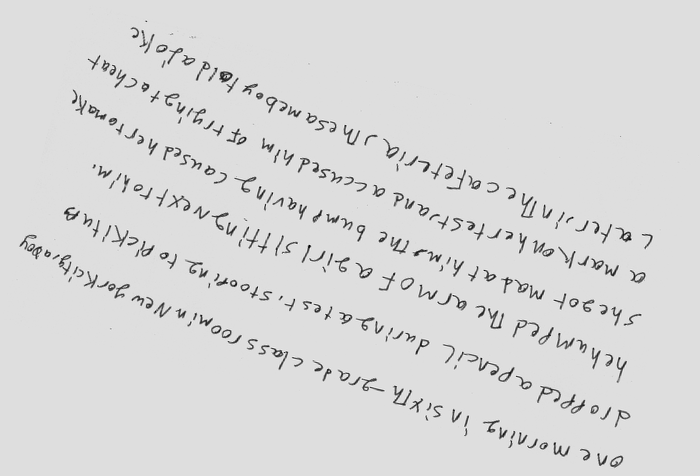 one morning in sixth-grade class room in New york city, a boy
dropped a pencil during a test, stooping to pick it up
he bumped The arm of a girl sitting Next to him.
she got mad at him, the bump having caused her to make
a mark on her test, and accused him of trying to cheat
Later, in The cafeteria, The same boy told a joke